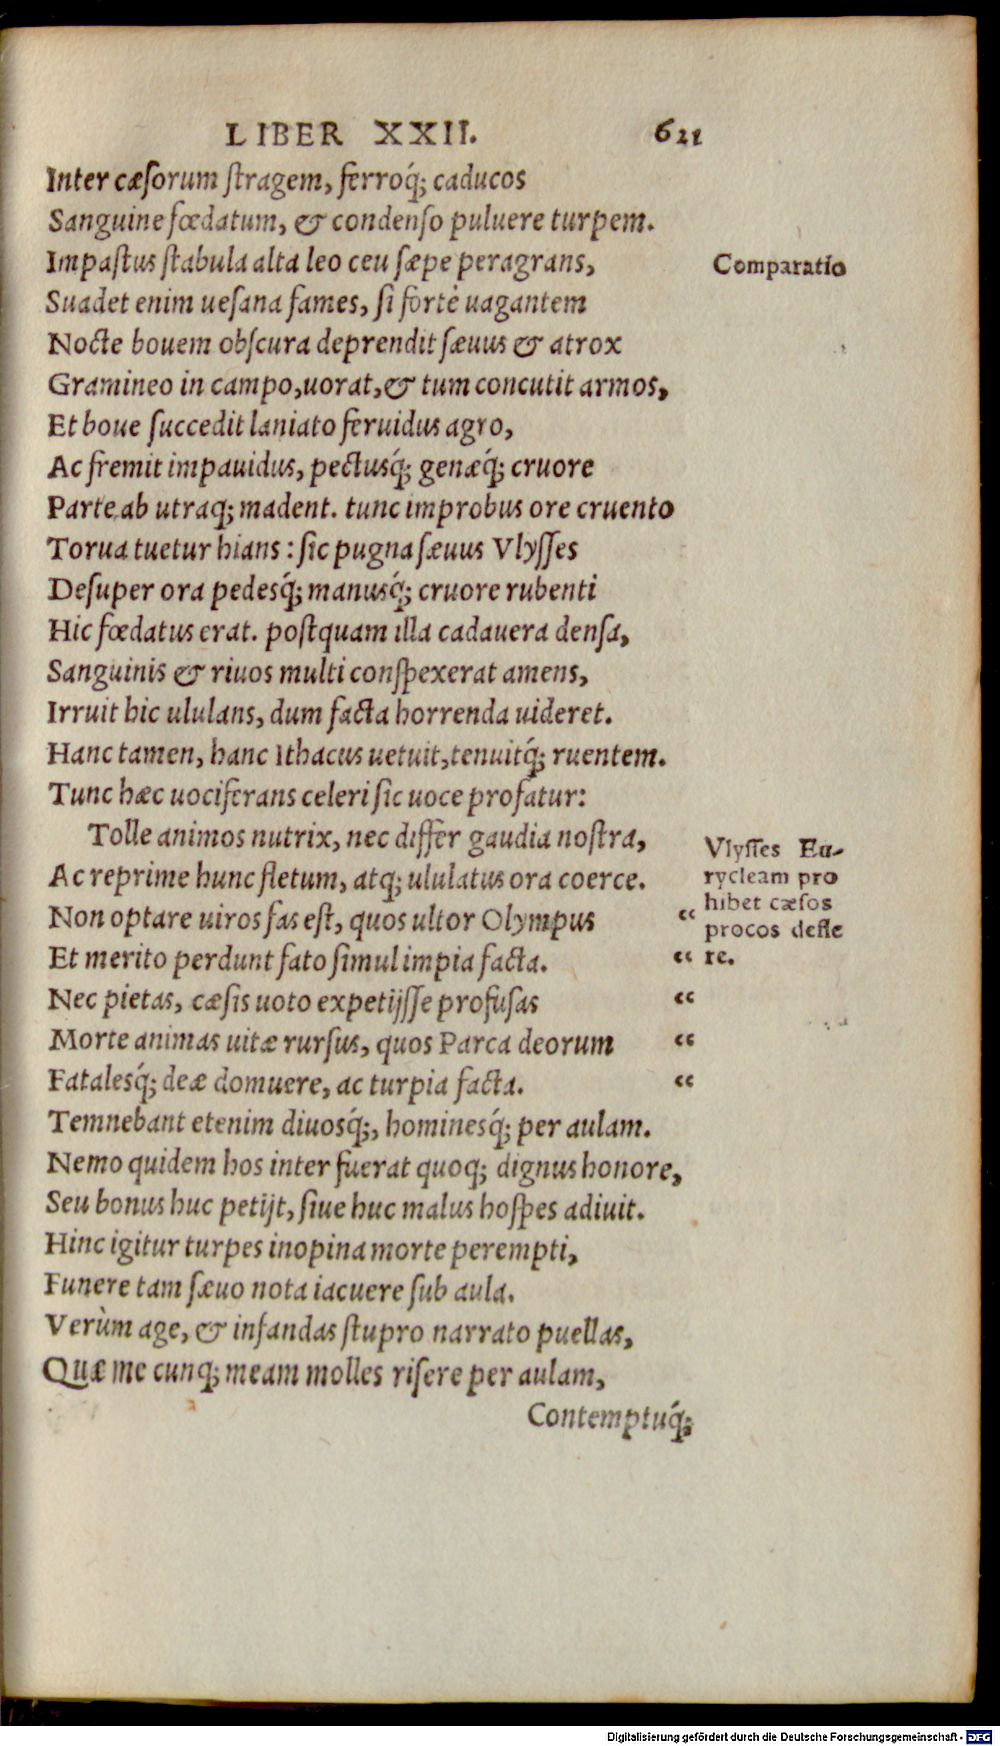 LIBER XXII. 621
Inter cæsorum stragem, ferroq́; caducos
Sanguine fœdatum, & condenso puluere turpem.
Impastus stabula alta leo ceu sæpe peragrans,
Comparatio
Suadet enim uesana fames, si fortè uagantem
Nocte bouem obscura deprendit sæuus & atrox
Gramineo in campo,uorat,& tum concutit armos,
Et boue succedit laniato feruidus agro,
Ac fremit impauidus, pectusq́; genæq́; cruore
Parte ab utraq; madent. tunc improbus ore cruento
Torua tuetur hians: sic pugna sæuus Vlysses
Desuper ora pedesq́; manusq́; cruore rubenti
Hic fœdatus erat. postquam illa cadauera densa,
Sanguinis & riuos multi conspexerat amens,
Irruit hic ululans, dum facta horrenda uideret.
Hanc tamen, hanc Ithacus uetuit,tenuitq́; ruentem.
Tunc hæc uociferans celeri sic uoce profatur:
Tolle animos nutrix, nec differ gaudia nostra,
Ac reprime hunc fletum, atq; ululatus ora coerce.
Non optare uiros fas est, quos ultor Olympus “
Et merito perdunt fato simul impia facta. “
Nec pietas, cæsis uoto expetijsse profusas “
Morte animas uitæ rursus, quos Parca deorum “
Fatalesq́; deæ domuere, ac turpia facta. “
Vlysses Eu-
rycleam pro
hibet cæsos
procos defle
re.
Temnebant etenim diuosq́;, hominesq́; per aulam.
Nemo quidem hos inter fuerat quoq; dignus honore,
Seu bonus huc petijt, siue huc malus hospes adiuit.
Hinc igitur turpes inopina morte perempti,
Funere tam sæuo nota iacuere sub aula.
Verùm age, & infandas stupro narrato puellas,
Quæ me cunq; meam molles risere per aulam,
Contemptuq́;
Digitalisierung gefördert durch die Deutsche Forschungsgemeinschaft - DFG